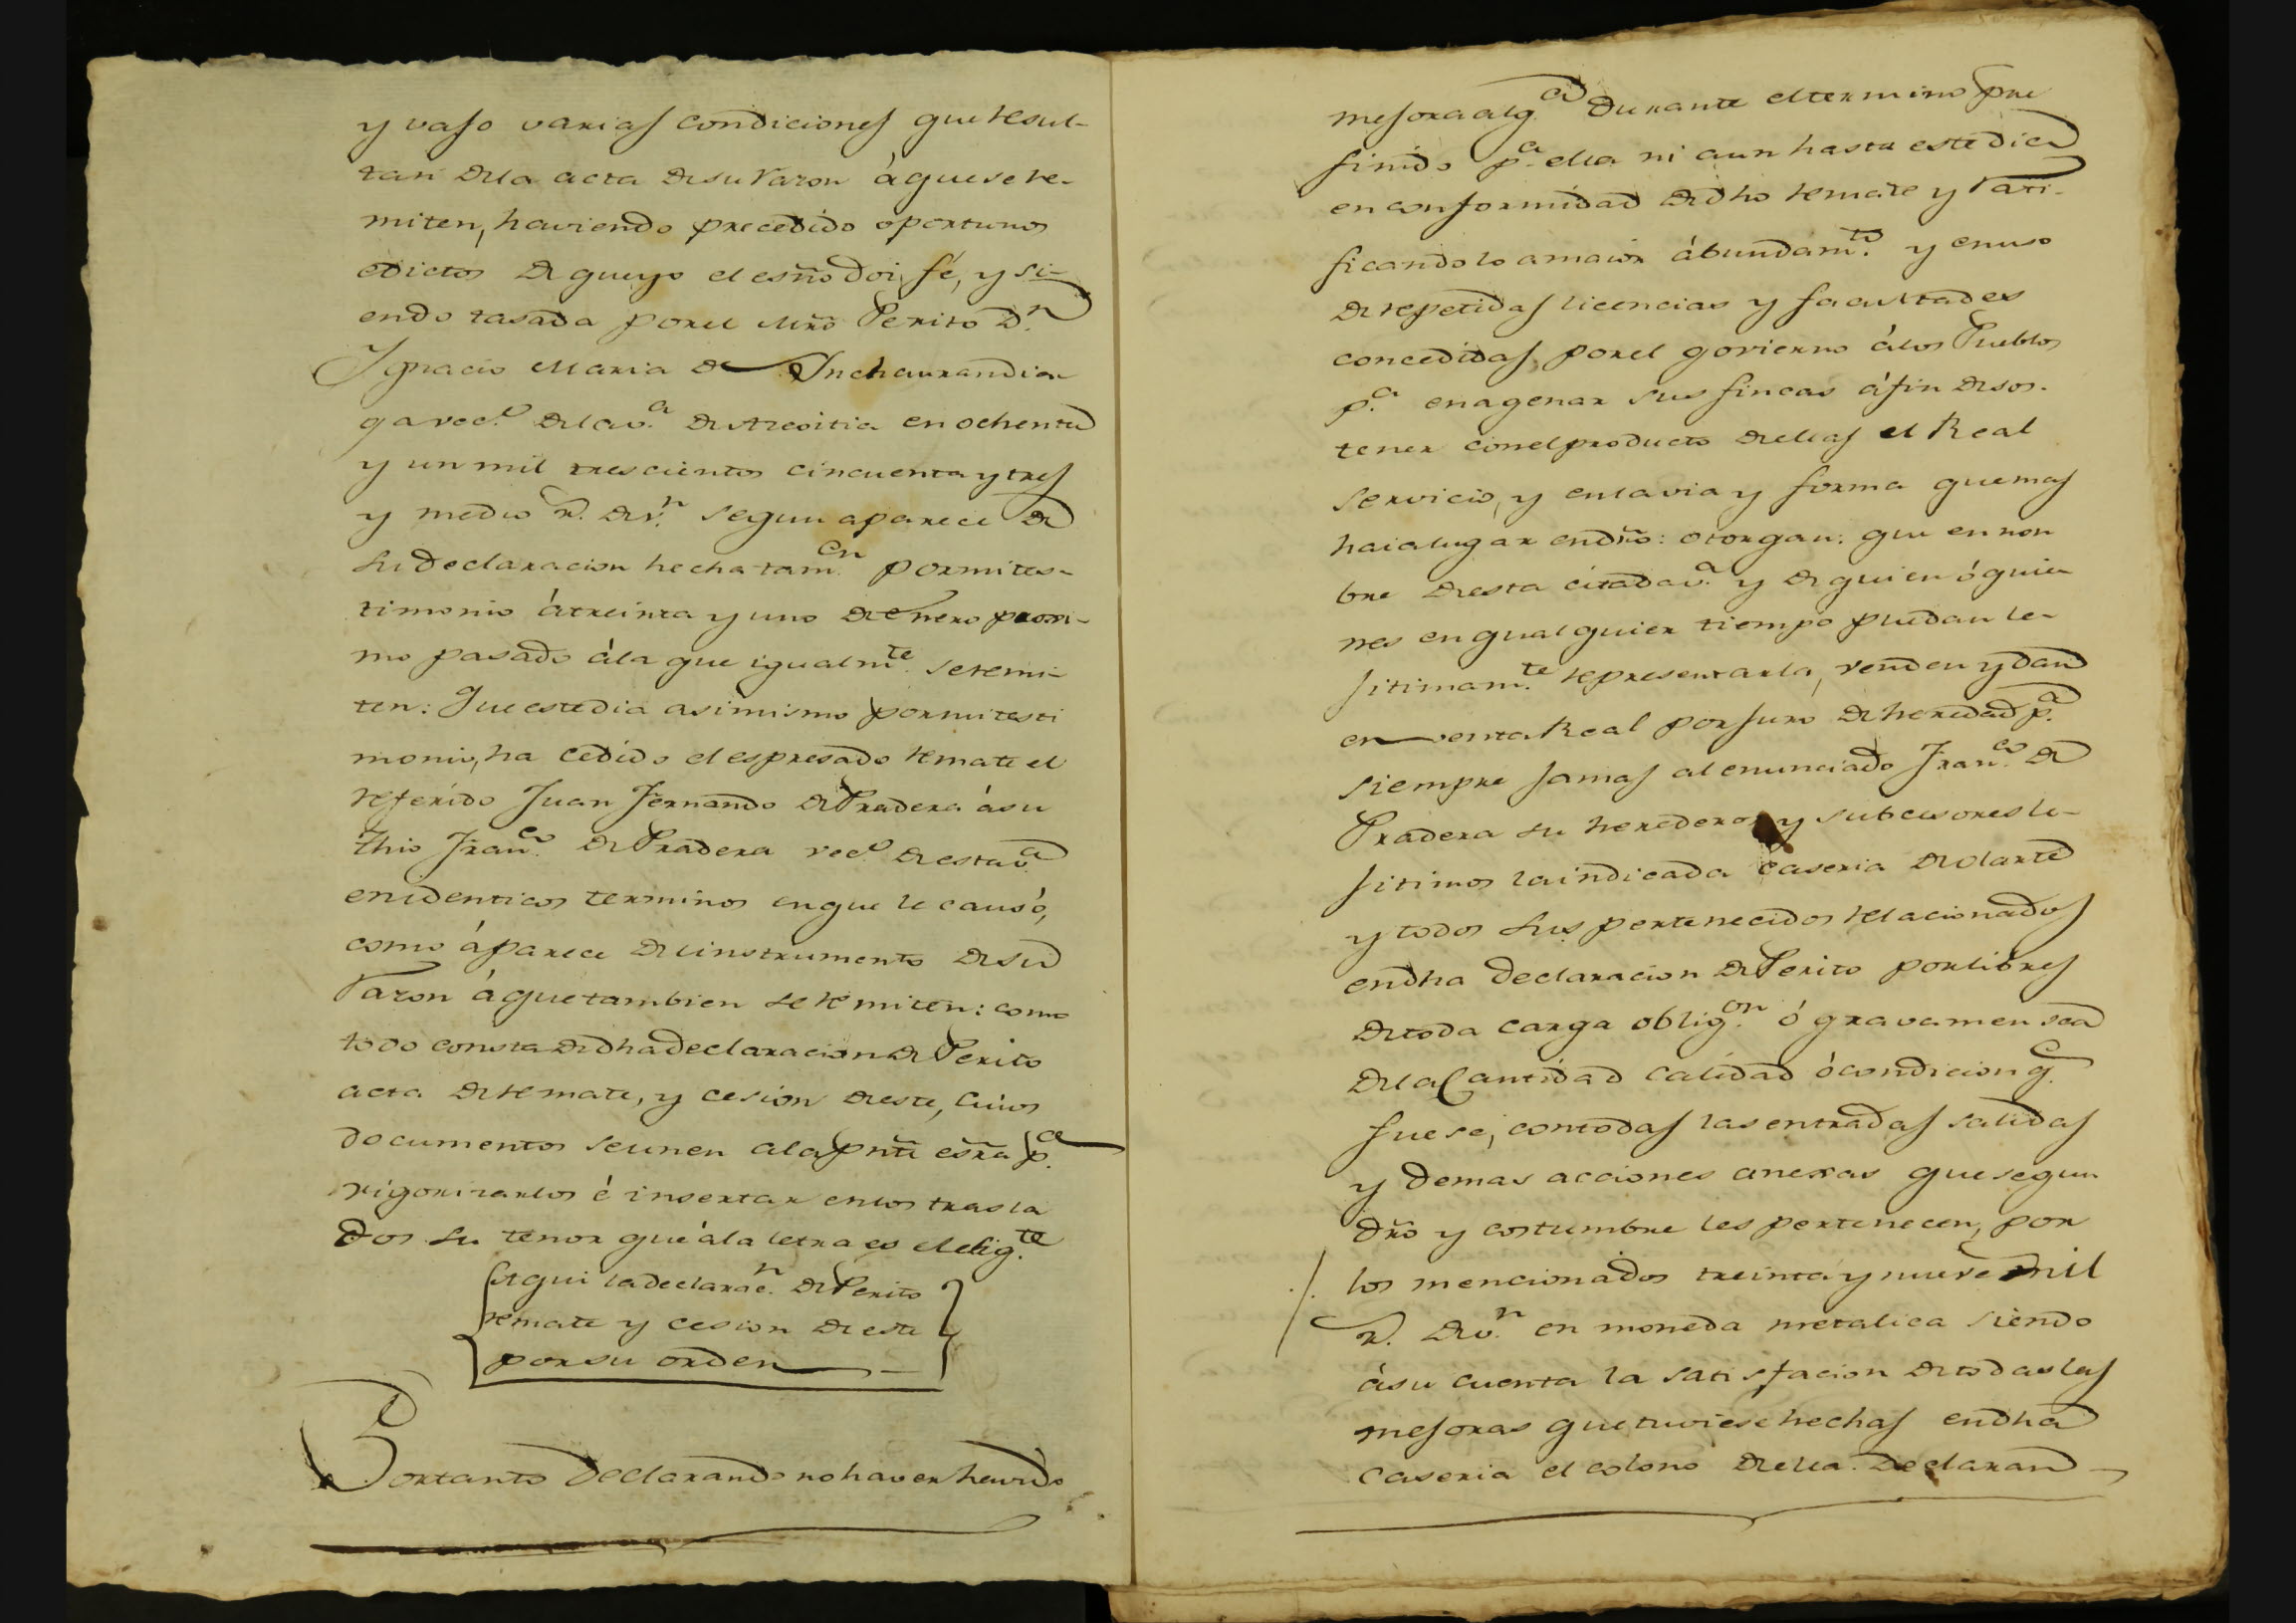 y vajo varias condiciones que resul-
tan de la acta de su razon à que se re-
miten, haviendo precedido oportunos
edictos de que yo el esño doi fé, y si-
endo tasada por el Mrô Perito Dn.
Ignacio Maria de Inchaurandia-
ga vecº. de la vª. de Azcoitia en ochenta
y un mil trescientos cincuenta y tres
y medio rs. de vn. segun aparece de
su declaracion hecha tamcn. por mi tes-
timonio à treinta y uno de enero proxi-
mo pasado à la que igualmte. se remi-
ten: Que este dia asimismo por mi testi
monio, ha cedido el espresado remate el
referido Juan Fernando de Pradera à su
thio Franco. de Pradera vecº. de esta vª.
en identicos terminos en que le causó,
como àparece del instrumento de su
razon à que tambien se remiten: como
todo consta de dha declaracion de Perito
acta de remate, y cesion de este, cuios
documentos se unen a la pnte esra pa.
rigorizarlos é insertar en los trasla
dos su tenor que à la letra es el sigte.
Aqui la declaracn. de Perito
remate y cesion de este
por su orden
Por tanto declarando no haver havido
mejora alga. durante el termino pre
finido pa. ella ni aun hasta este dia
en conformidad de dho remate y rati-
ficandolo a maior àbundamto. y en uso
de repetidas licencias y facultades
concedidas por el govierno à los Pueblos
pa. enagenar sus fincas à fin de sos-
tener con el producto de ellas el Real
servicio, y en la via y forma que mas
haia lugar en dro: otorgan: que en nom
bre de esta citada vª. y de quien ó quie
nes en qualquier tiempo puedan le-
jitimamte. representarla, venden y dan
en venta Real por juro de heredad pa.
siempre jamas al enunciado Franco. de
Pradera su herederos y subcesores le-
jitimos la indicada caseria de Olarte
y todos sus pertenecidos relacionados
en dha declaracion de Perito por libres
de toda carga obligon. ó gravamen sea
de la cantidad calidad ó condicion qe.
fuese, con todas las entradas salidas
y demas acciones anexas que segun
dro y costumbre les pertenecen, por
los mencionados treinta y nueve mil
rs. de vn. en moneda metalica siendo
à su cuenta la satisfacion de todas las
mejoras que tuviese hechas en dha
caseria el colono de ella. Declaran